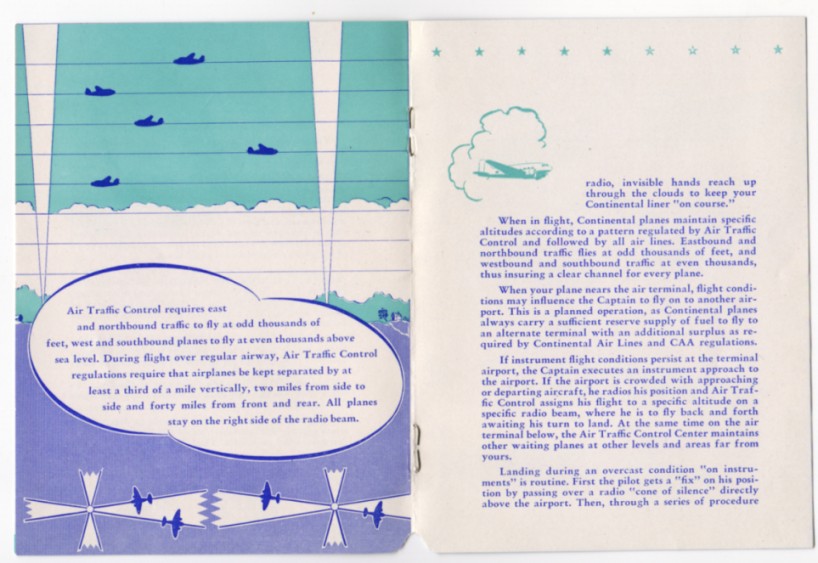 Air Traffic Control requires east
and northbound traffic to fly at odd thousands of
feet, west and southbound planes to fly at even thousands above
sea level. During flight over regular airway, Air Traffic Control
regulations require that airplanes be kept separated by at
least a third of a mile vertically, two miles from side to
side and forty miles from front and rear. All planes
stay on the right side of the radio beam.
radio, invisible hands reach up
through the clouds to keep your
Continental liner "on course."
When in flight, Continental planes maintain specific
altitudes according to a pattern regulated by Air Traffic
Control and followed by all air lines. Eastbound and
northbound traffic flies at odd thousands of feet, and
westbound and southbound traffic at even thousands,
thus insuring a clear channel for every plane.
When your plane nears the air terminal, flight condi-
tions may influence the Captain to fly on to another air-
port. This is a planned operation, as Continental planes
always carry a sufficient reserve supply of fuel to fly to
an alternate terminal with an additional surplus as re-
quired by Continental Air Lines and CAA regulations.
If instrument flight conditions persist at the terminal
airport, the Captain executes an instrument approach to
the airport. If the airport is crowded with approaching
or departing aircraft, he radios his position and Air Traf-
fic Control assigns his flight to a specific altitude on a
specific radio beam, where he is to fly back and forth
awaiting his turn to land. At the same time on the air
terminal below, the Air Traffic Control Center maintains
other waiting planes at other levels and areas far from
yours.
Landing during an overcast condition "on instru-
ments" is routine. First the pilot gets a "fix" on his posi-
tion by passing over a radio "cone of silence" directly
above the airport. Then, through a series of procedure